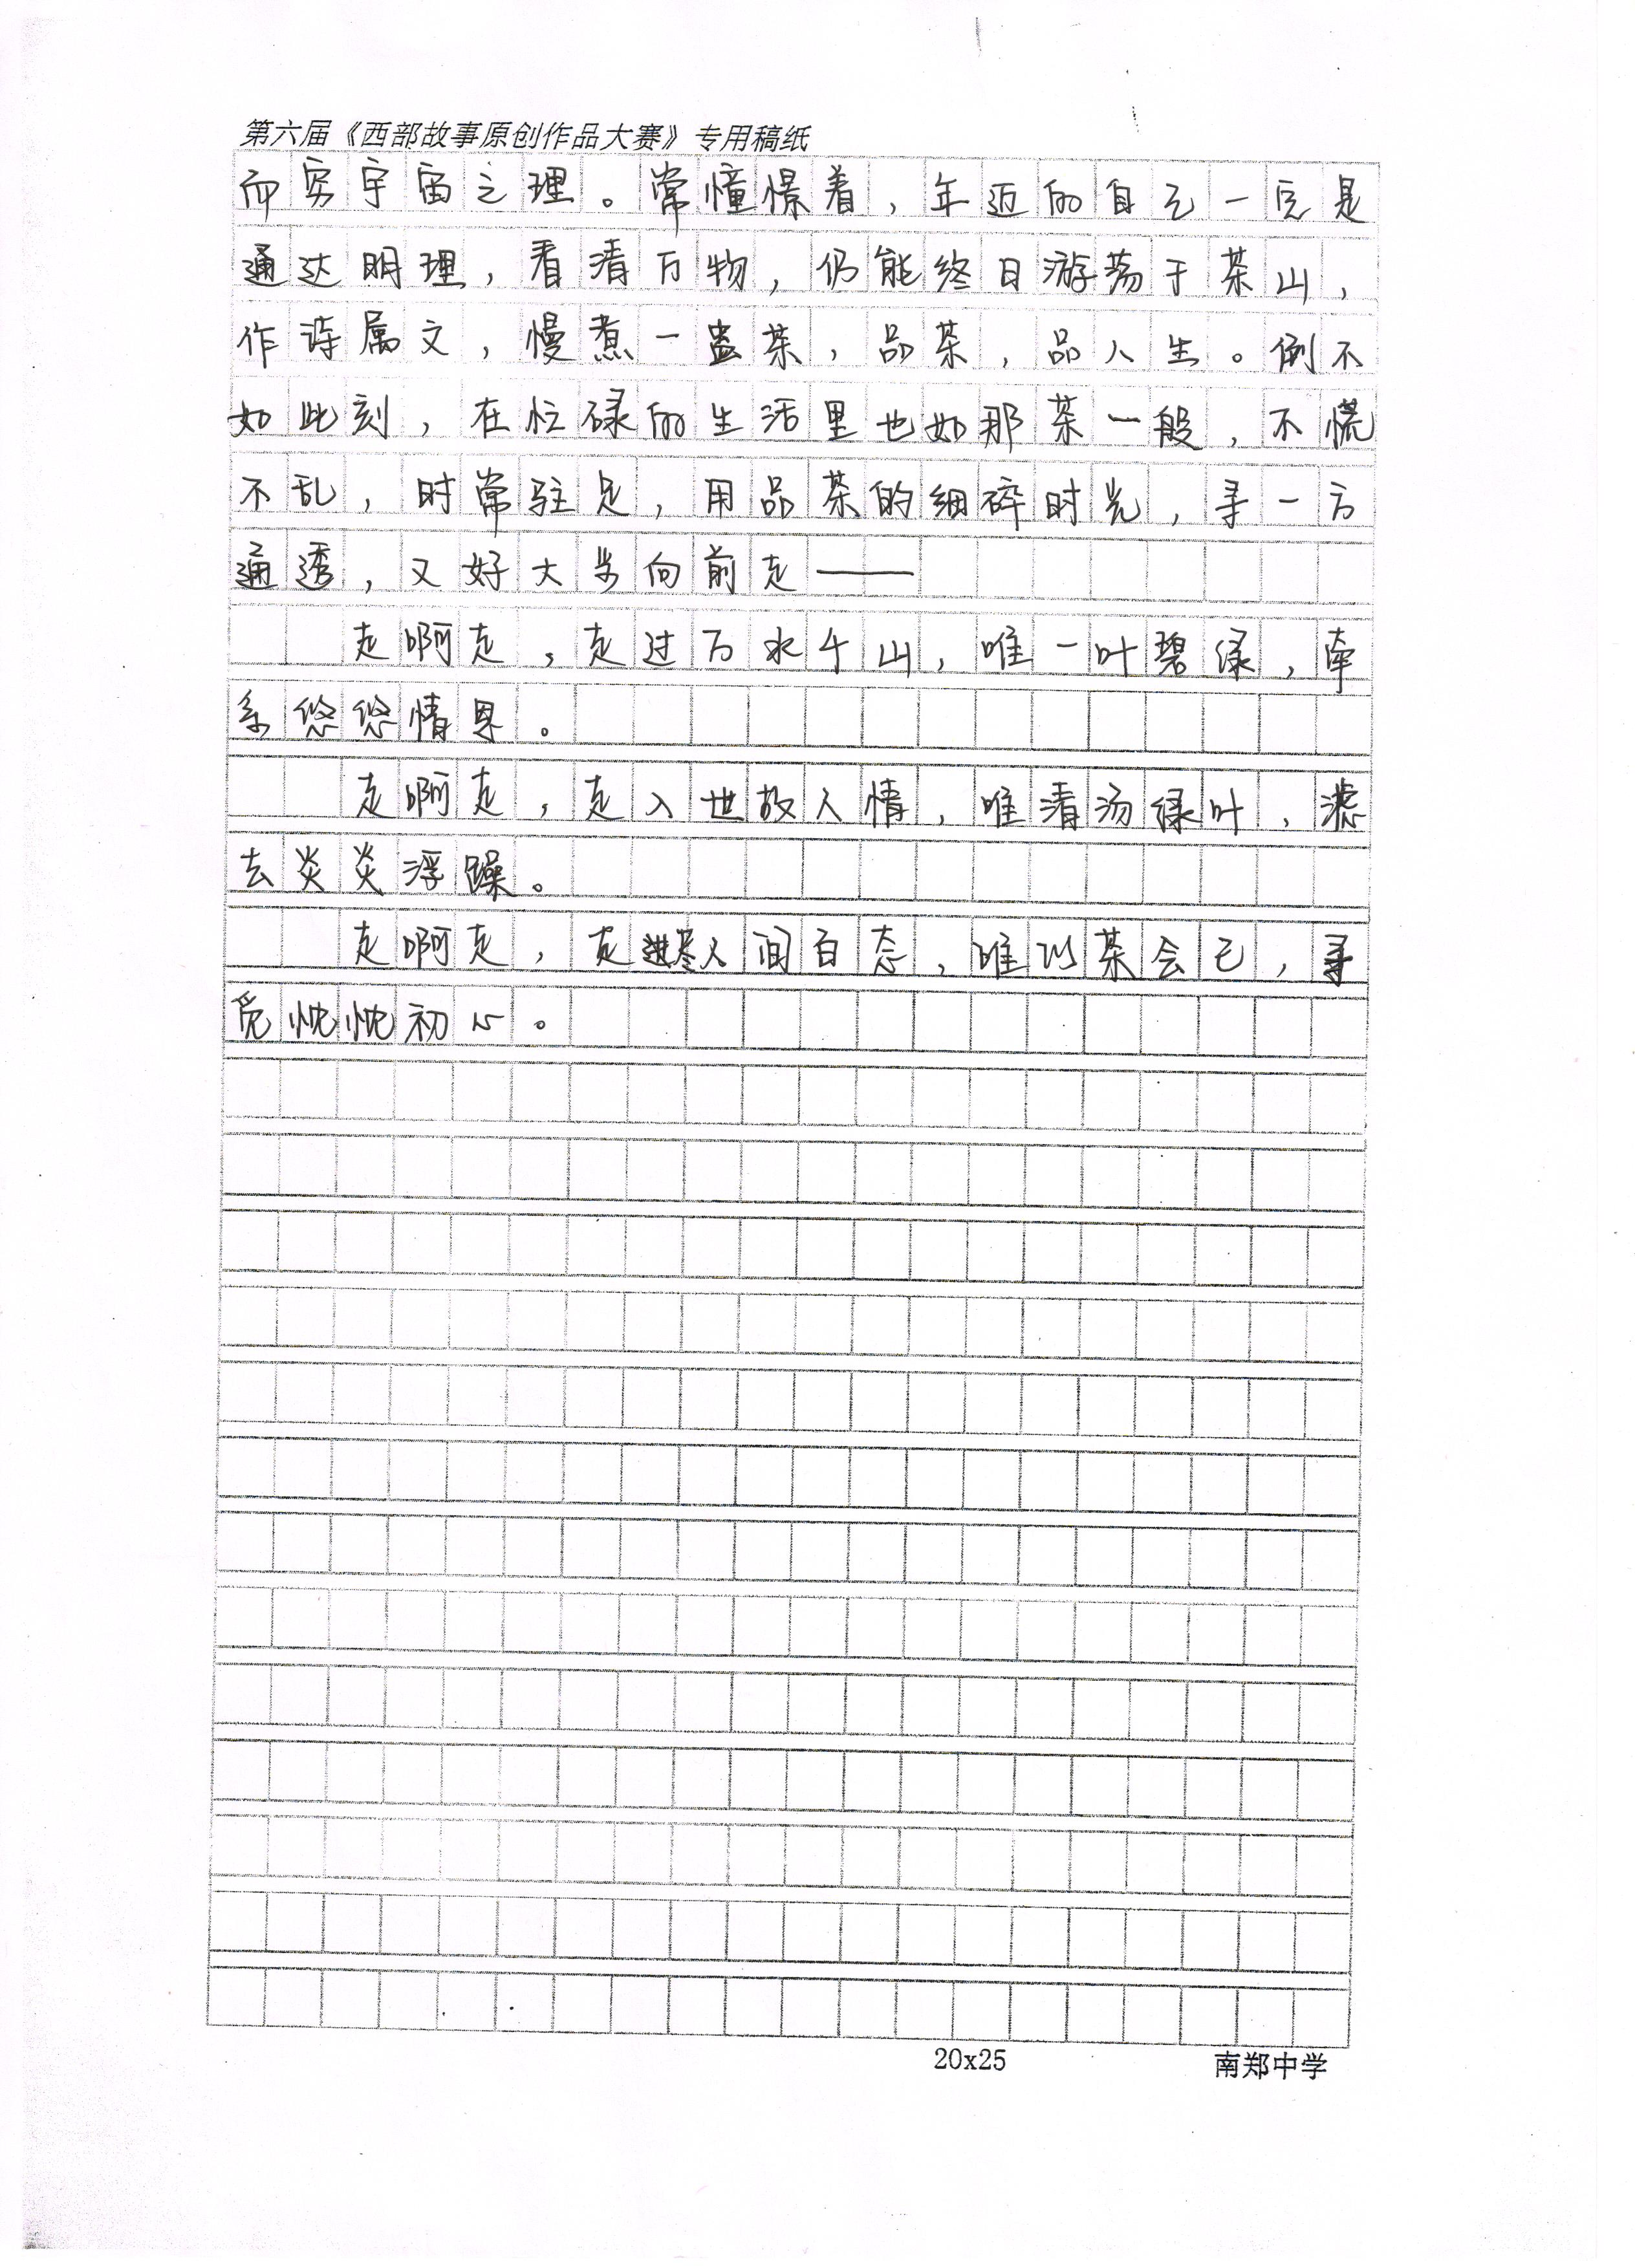 第六届《西部故事原创作品大赛》专用稿纸
而穷宇宙之理。常憧憬着，年迈的自己一定是
通达明理，看清万物，仍能终日游荡于茶山，
作诗属文，慢煮一盅茶，品茶，品人生。倒不
如此刻，在忙碌的生活里也如那茶一般，不慌
不乱，时常驻足，用品茶的细碎时光，寻一方
通透，又好大步向前走——
走啊走，走过万水千山，唯一叶碧绿，牵
系悠悠情思。
走啊走，走入世故人情，唯清汤绿叶，滤
去炎炎浮躁。
走啊走，走进人间百态，唯以茶会己，寻
觅忱忱初心。
20x25
南郑中学